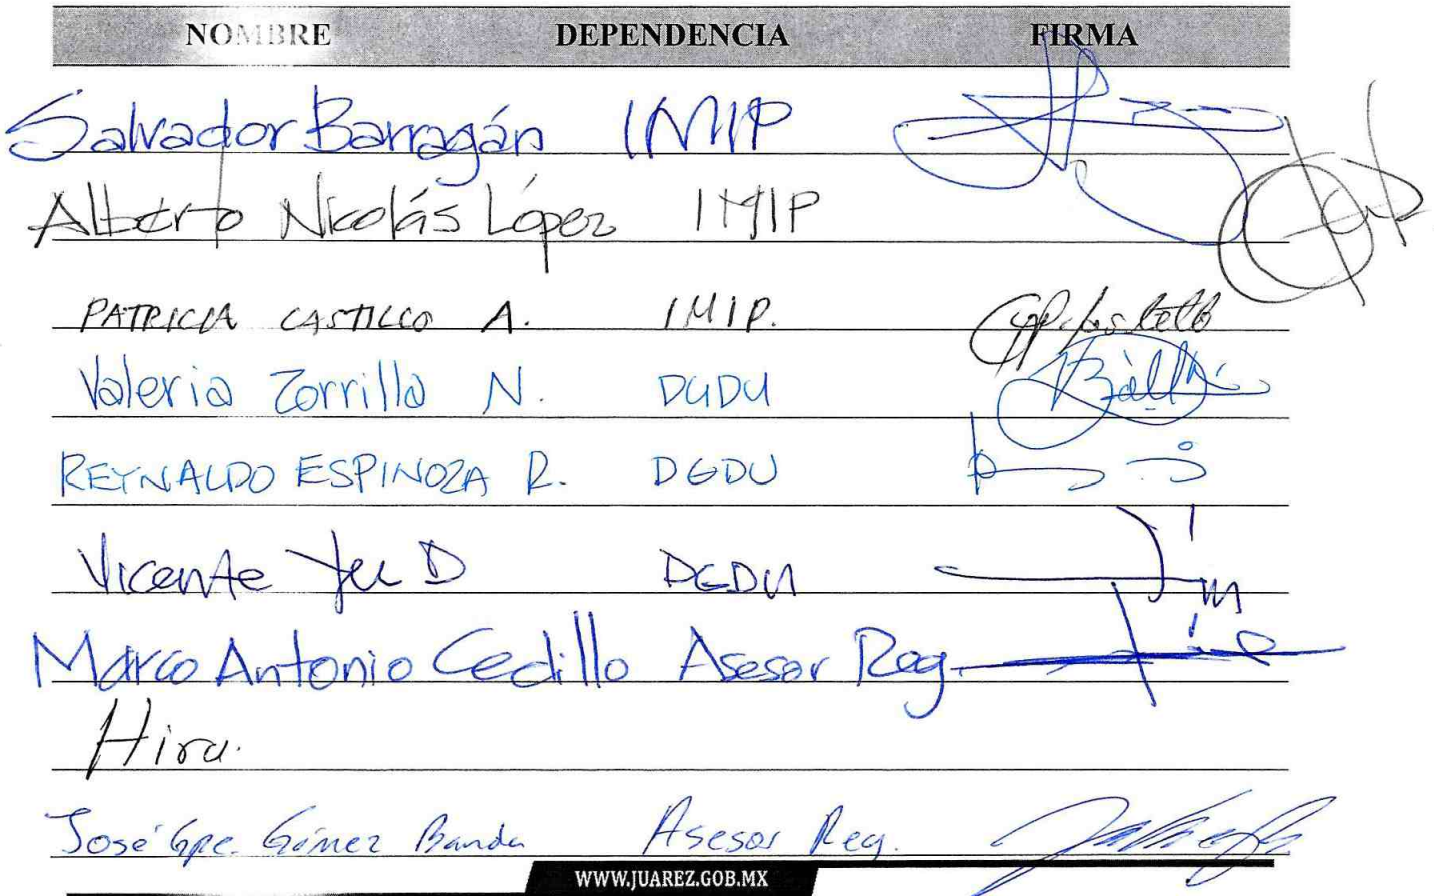 NOMBRE DEPENDENCIA FIRMA
Salvador Barragán IMIP
Alberto Nicolás López IMIP
PATRICIA CASTILLO A. IMIP.
Valeria Zorrilla N. DGDU
REYNALDO ESPINOZA R. DGDU
Vicente D DGDU
Marco Antonio Cedillo Asesor Reg.
José Gpe. Gómez Banda Asesor Reg.
WWW.JUAREZ.GOB.MX